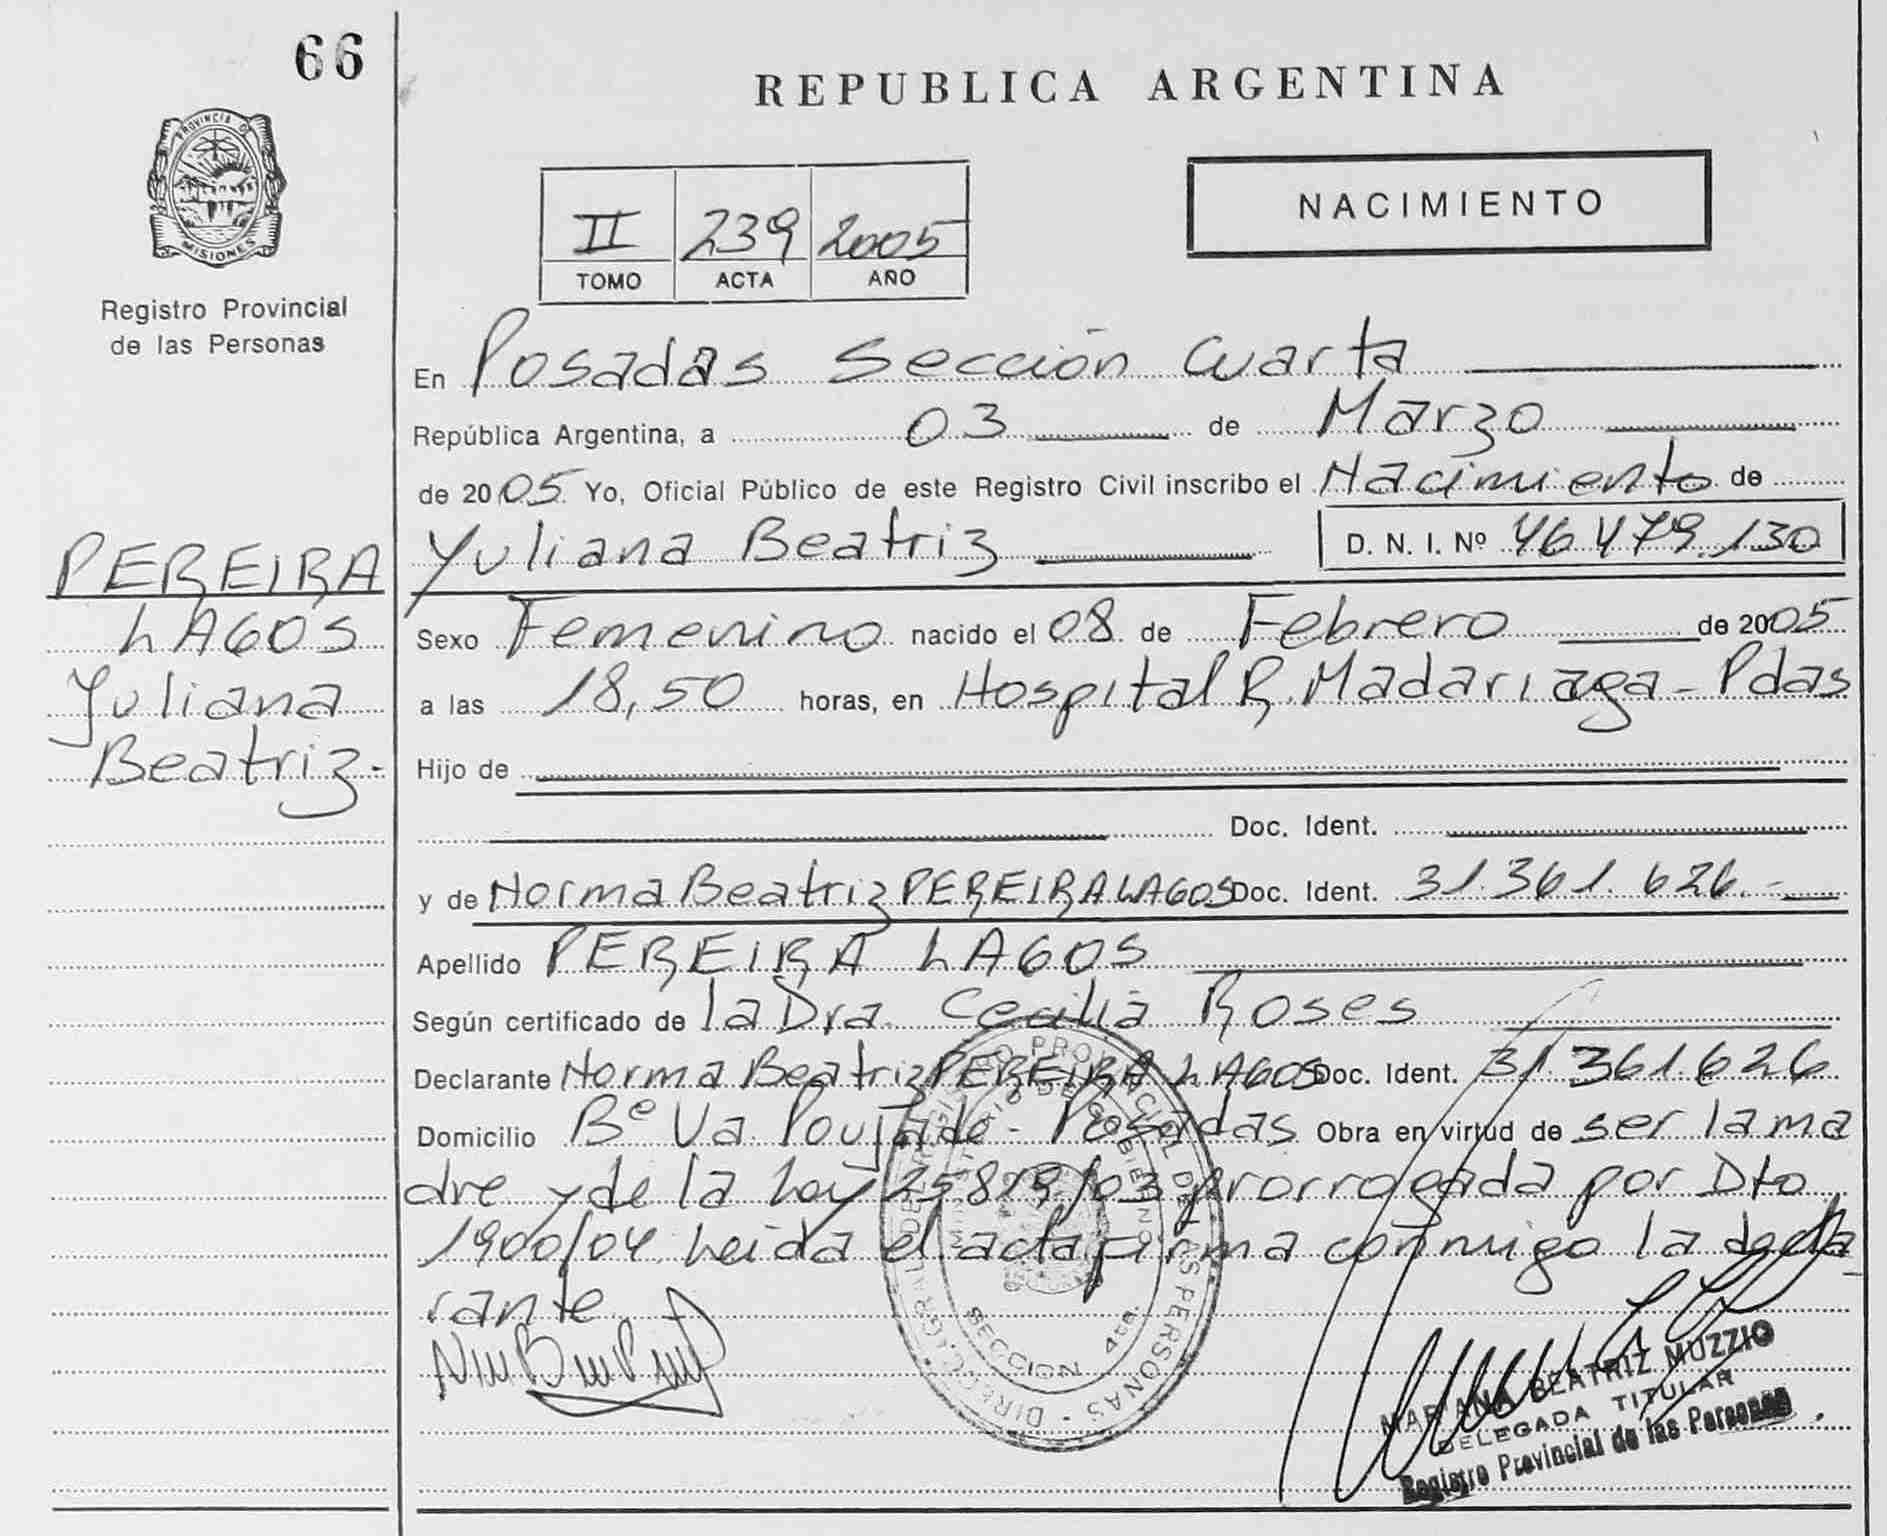 66
PROVINCIA DE
MISIONES
Registro Provincial
de las Personas
PEREIRA
LAGOS
Yuliana
Beatriz-
REPUBLICA ARGENTINA
NACIMIENTO
II 239 2005
TOMO ACTA AÑO
En Posadas Sección Cuarta
República Argentina, a 03 de Marzo
de 2005 Yo, Oficial Público de este Registro Civil inscribo el Nacimiento de
Yuliana Beatriz D. N. I. Nº 46.479.130
Sexo Femenino nacido el 08 de Febrero de 2005
a las 18,50 horas, en Hospital R. Madariaga - Pdas
Hijo de
Doc. Ident.
y de Norma Beatriz PEREIRA LAGOS Doc. Ident. 31.361.626.-
Apellido PEREIRA LAGOS
Según certificado de la Dra. Cecilia Roses
Declarante Norma Beatriz PEREIRA LAGOS Doc. Ident. 31.361.626
Domicilio Bº Va Poujade - Posadas Obra en virtud de ser la ma
dre y de la Ley 25819/03 prorrogada por Dto
1900/04. Leida el acta firma conmigo la decla
rante.
DIRECC. GRAL. DE REGISTRO PROVINCIAL DE LAS PERSONAS -
MINISTERIO DE GOBIERNO
SECCION 4ta.
MARIANA BEATRIZ MUZZIO
DELEGADA TITULAR
Registro Provincial de las Personas